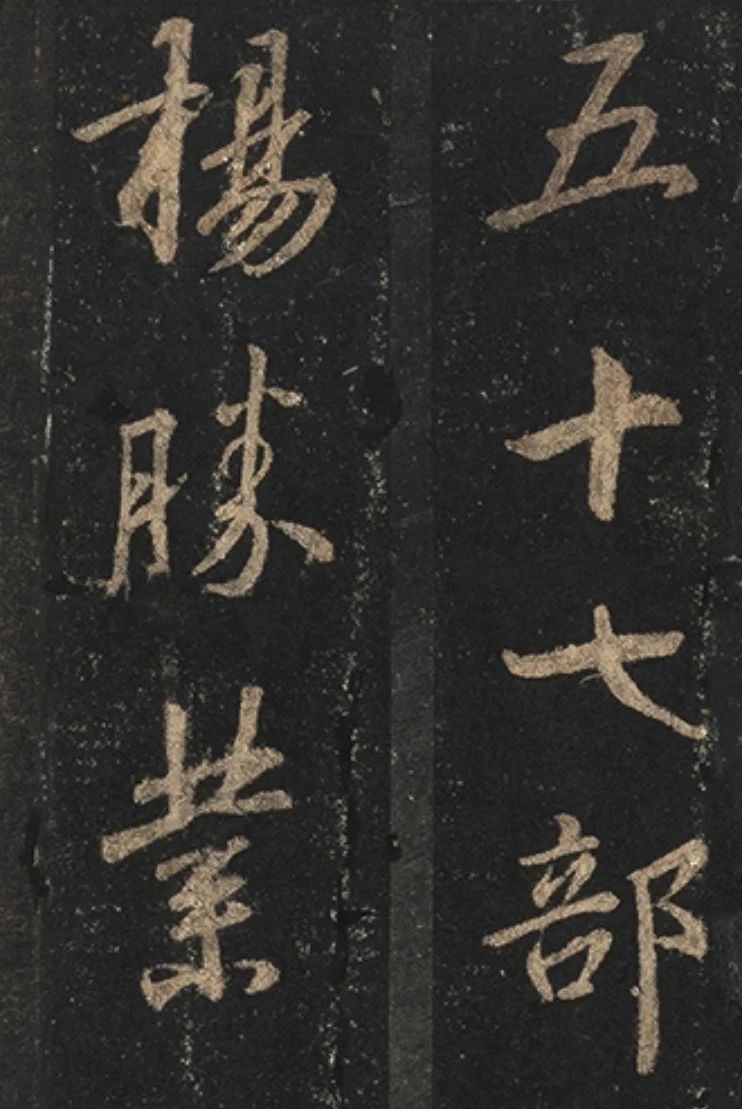 五十七部
楊勝業